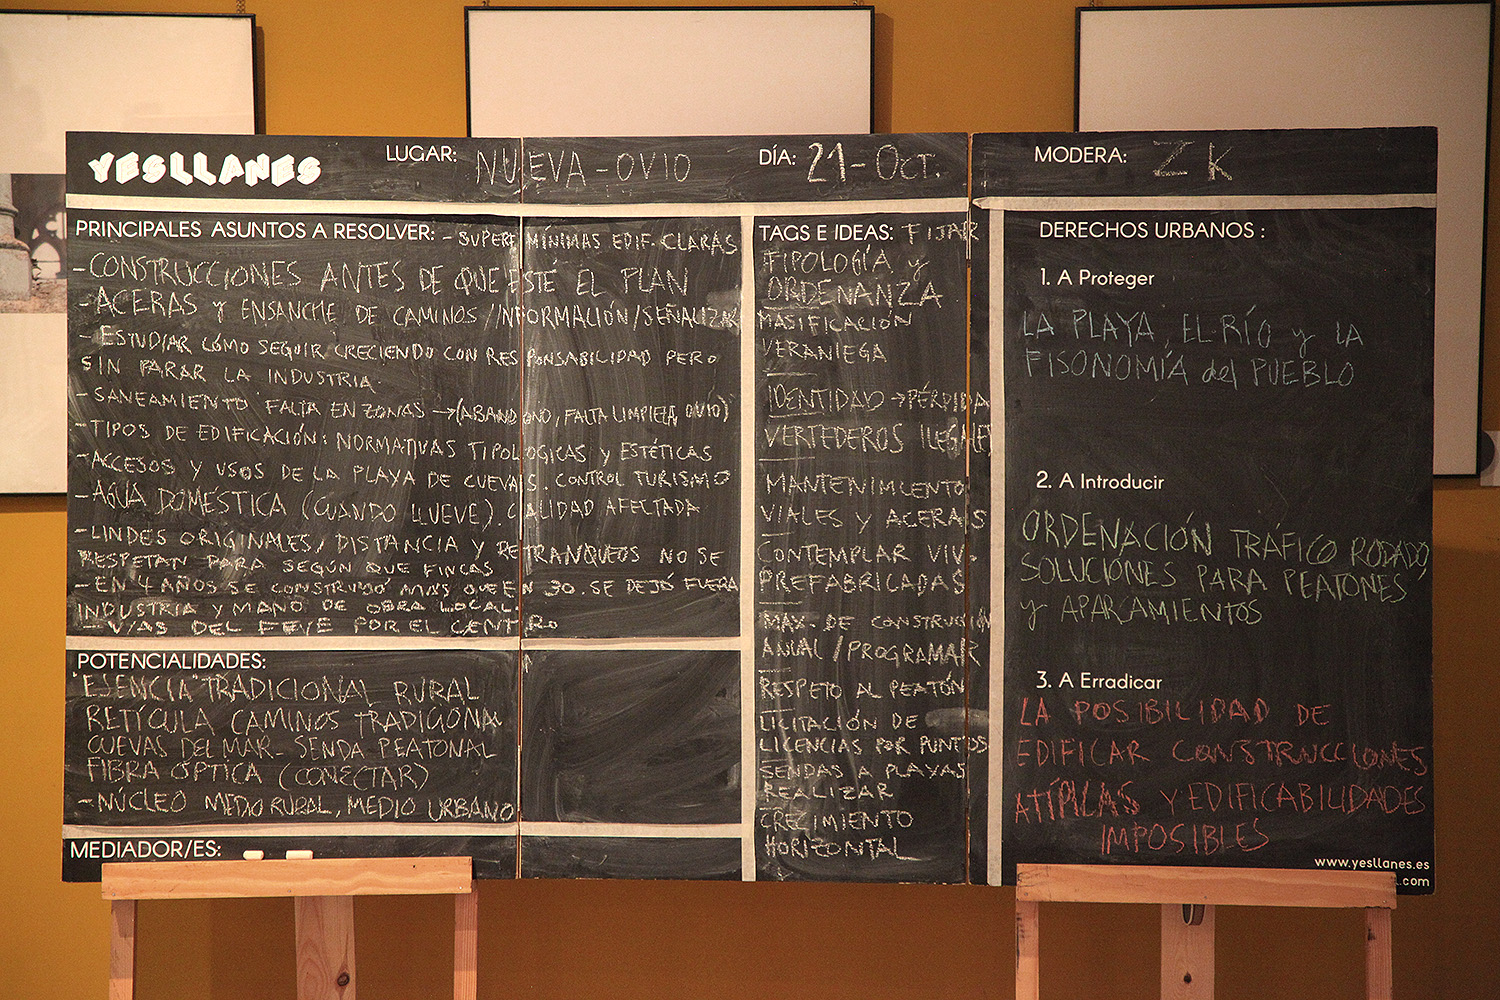 YESLLANES
LUGAR: NUEVA-OVIO
DÍA: 21-OCT.
MODERA: ZK
PRINCIPALES ASUNTOS A RESOLVER: - SUPERF MÍNIMAS EDIF. CLARAS
- CONSTRUCCIONES ANTES DE QUE ESTÉ EL PLAN
- ACERAS Y ENSANCHE DE CAMINOS / INFORMACIÓN / SEÑALIZAR
- ESTUDIAR CÓMO SEGUIR CRECIENDO CON RESPONSABILIDAD PERO
SIN PARAR LA INDUSTRIA.
- SANEAMIENTO FALTA EN ZONAS → (ABANDONO, FALTA LIMPIEZA, OVIO)
- TIPOS DE EDIFICACIÓN: NORMATIVAS TIPOLOGICAS y ESTÉTICAS
- ACCESOS Y USOS DE LA PLAYA DE CUEVAS. CONTROL TURISMO
- AGUA DOMÉSTICA (CUANDO LLUEVE). CALIDAD AFECTADA
- LINDES ORIGINALES, DISTANCIA Y RETRANQUEOS NO SE
RESPETAN PARA SEGÚN QUE FINCAS
- EN 4 AÑOS SE CONSTRUYÓ MAS QUE EN 30. SE DEJÓ FUERA
INDUSTRIA Y MANO DE OBRA LOCAL.
- VIAS DEL FEVE POR EL CENTRO
POTENCIALIDADES:
"ESENCIA" TRADICIONAL RURAL
RETÍCULA CAMINOS TRADICIONAL
CUEVAS DEL MAR - SENDA PEATONAL
FIBRA ÓPTICA (CONECTAR)
- NÚCLEO MEDIO RURAL, MEDIO URBANO
MEDIADOR/ES:
TAGS E IDEAS: FIJAR
TIPOLOGÍA y
ORDENANZA
MASIFICACIÓN
VERANIEGA
IDENTIDAD → PÉRDIDA
VERTEDEROS ILEGALES
MANTENIMIENTO
VIALES Y ACERAS
CONTEMPLAR VIV.
PREFABRICADAS
MAX. DE CONSTRUCIÓN
ANUAL / PROGRAMAR
RESPETO AL PEATÓN
LICITACIÓN DE
LICENCIAS POR PUNTOS
SENDAS A PLAYAS
REALIZAR
CRECIMIENTO
HORIZONTAL
DERECHOS URBANOS :
1. A Proteger
LA PLAYA, EL RÍO y LA
FISONOMÍA del PUEBLO
2. A Introducir
ORDENACIÓN TRÁFICO RODADO,
SOLUCIONES PARA PEATONES
y APARCAMIENTOS
3. A Erradicar
LA POSIBILIDAD DE
EDIFICAR CONSTRUCCIONES
ATÍPICAS Y EDIFICABILIDADES
IMPOSIBLES
www.yesllanes.es
.com